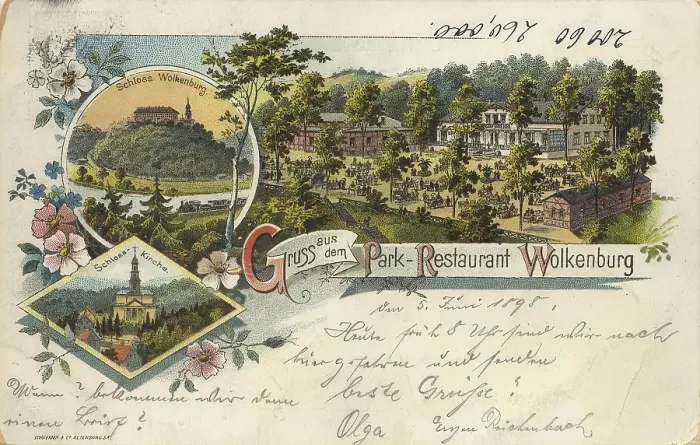 260,000.
20060
Schloss Wolkenburg.
Gruss aus dem Park-Restaurant Wolkenburg
Schloss-Kirche.
den 5. Juni 1898.
Heute früh 8 Uhr sind wir nach
hier gefahren und senden
beste Grüße!
Wann? bekommen wir denn
einen Brief?
Olga Reichenbach
SCHNEIDER & Co ALTENBURG S.A.